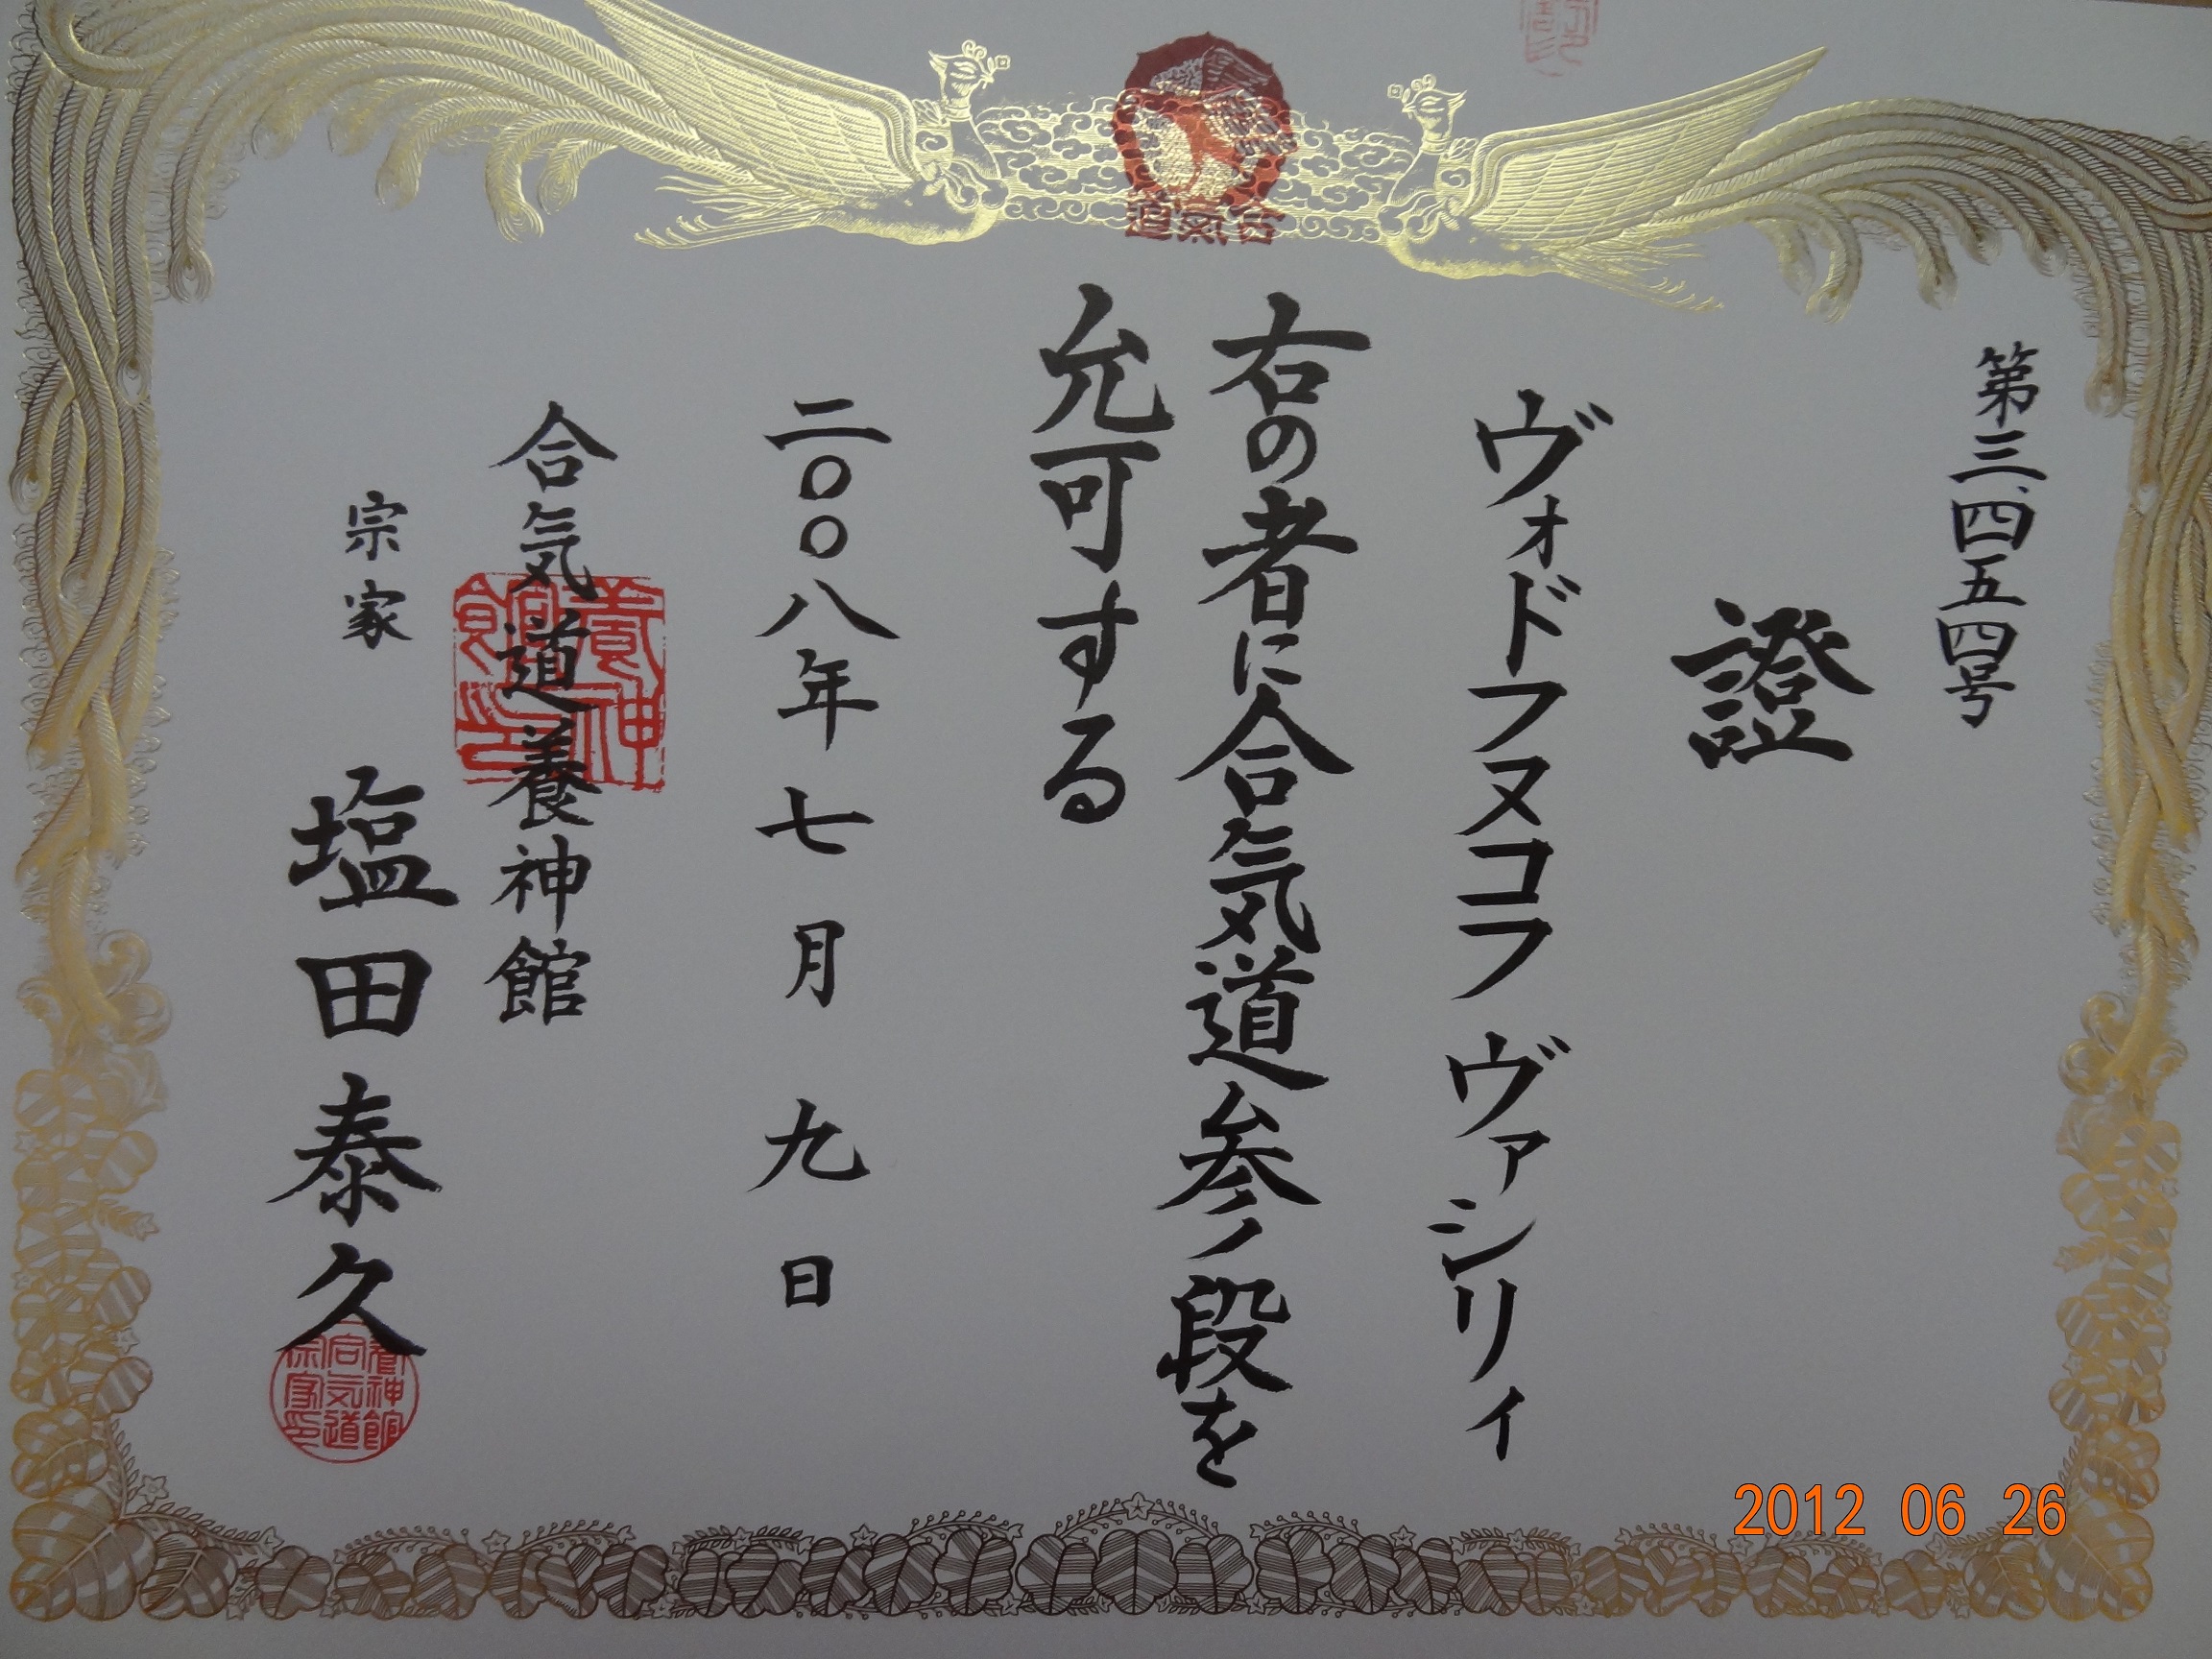 合氣道
第三四五四号
證
ヴォドフヌコフ ヴァシリィ
右の者に合気道参ノ段を
允可する
二〇〇八年七月九日
合気道養神館
養神館印
宗家 塩田泰久
養神館合気道宗家印
2012 06 26